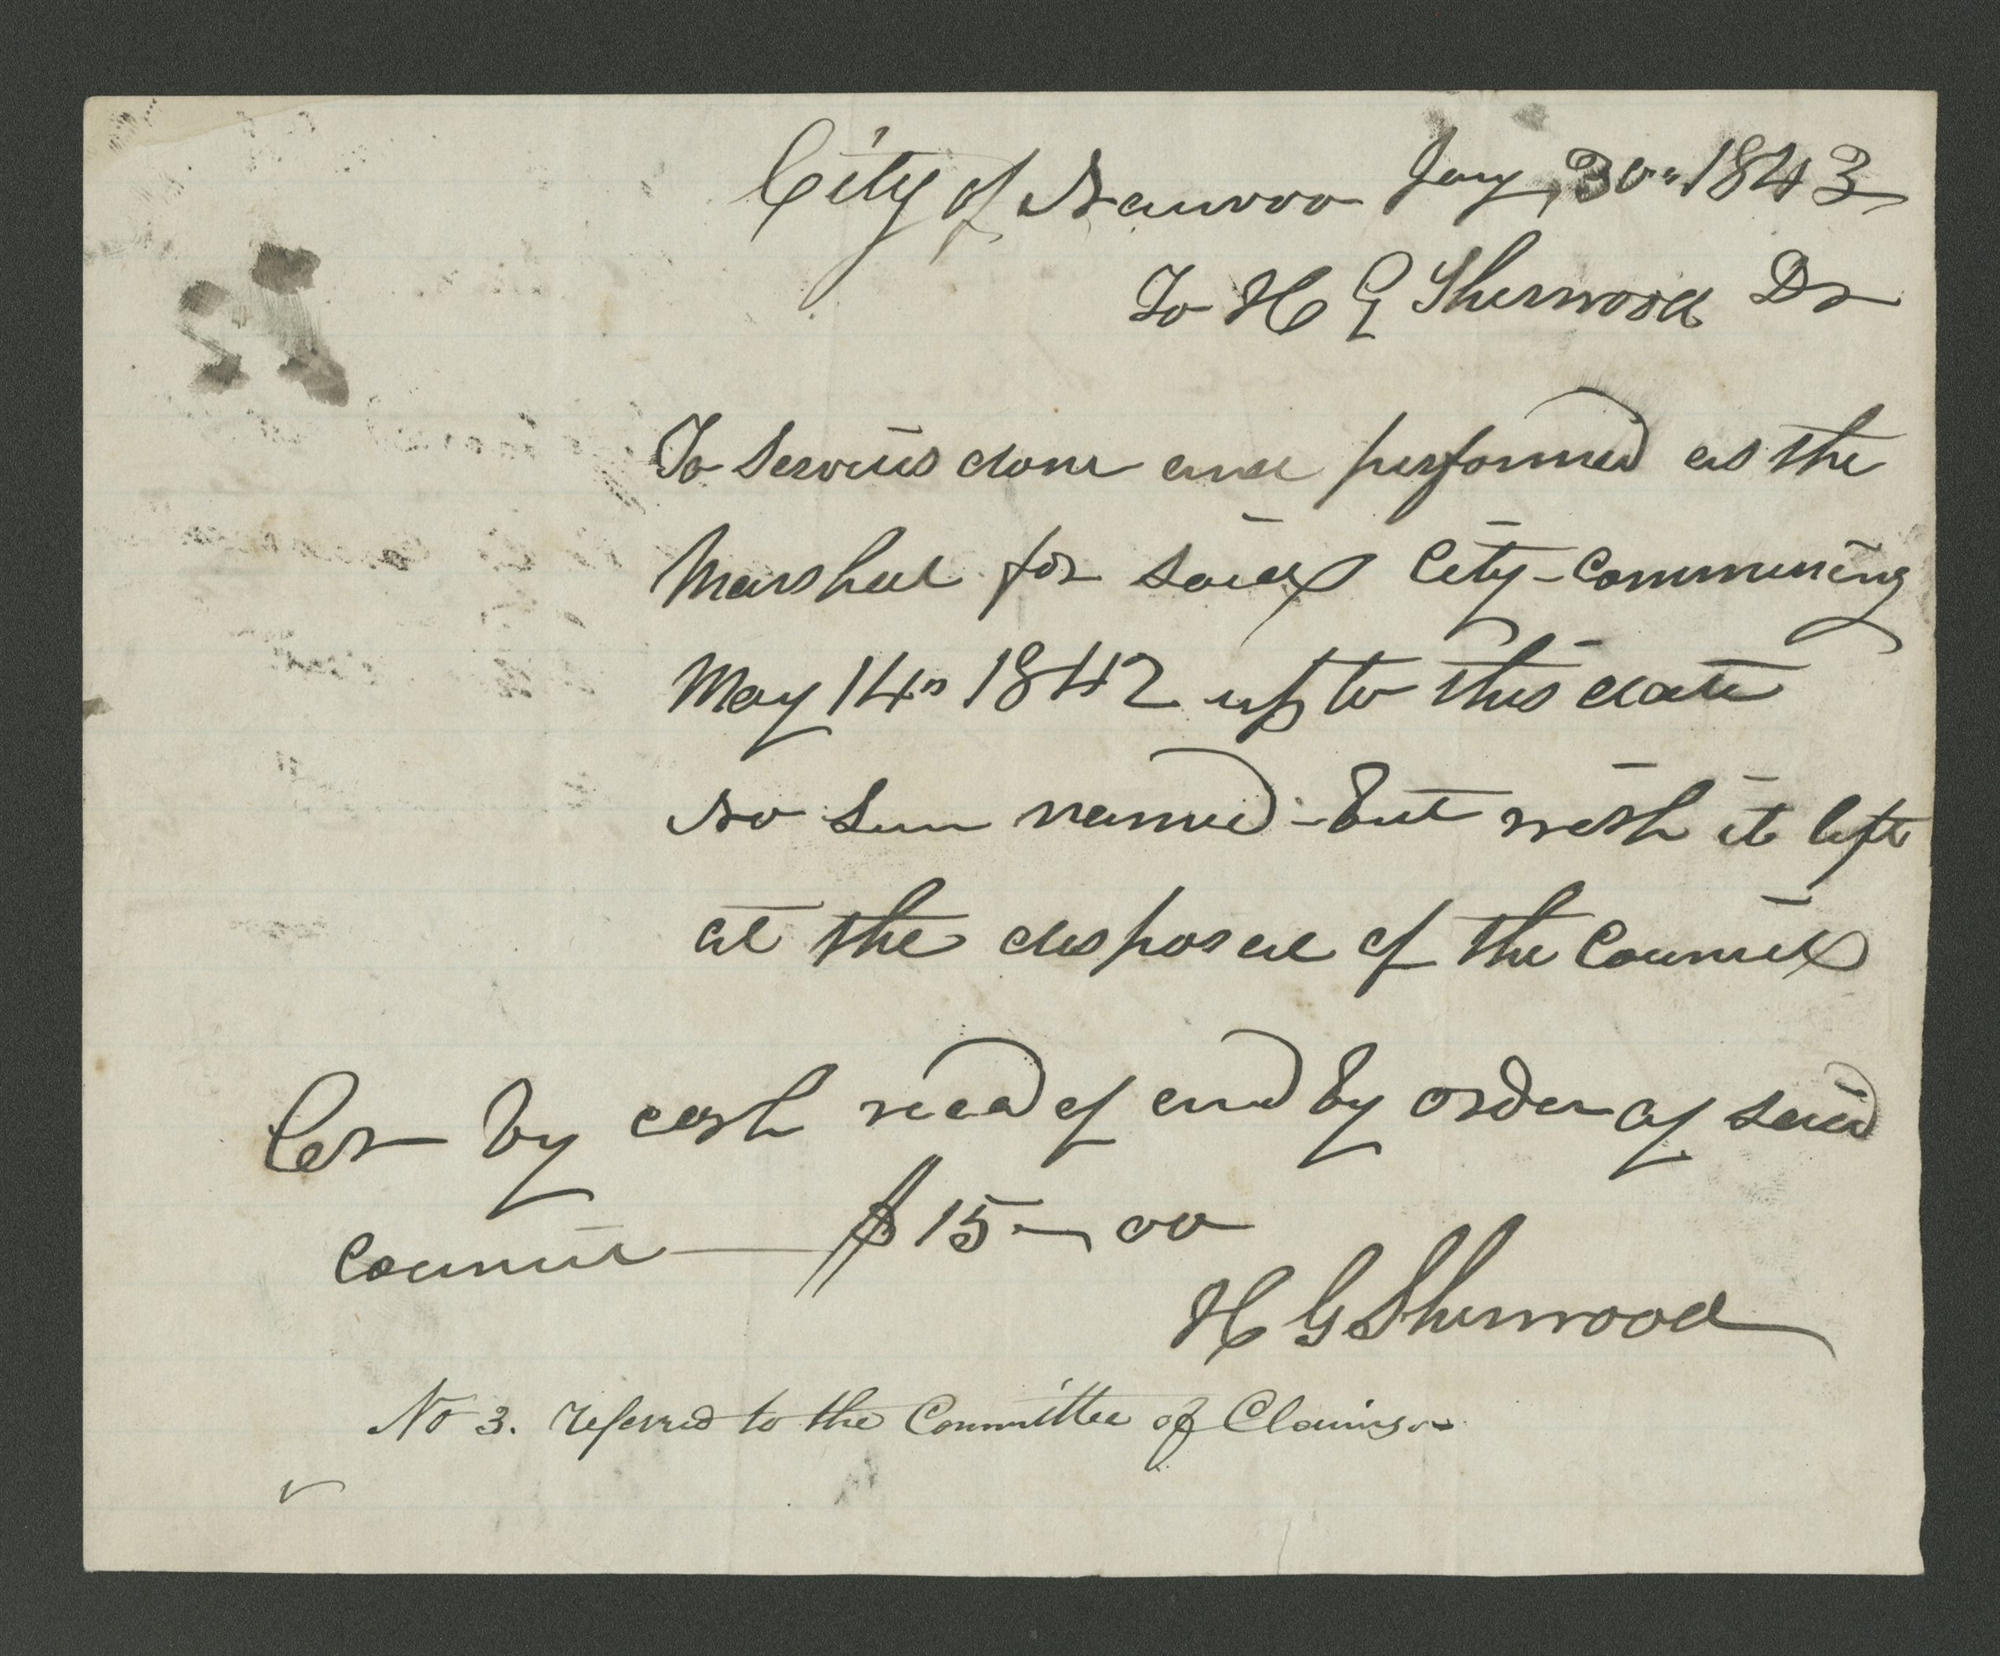 City of Nauvoo Jany, 30" 1843
To H G Sherwood Dr
To Servicis done and performed as the
Marshal for said City - Commencing
May 14th 1842 up to this date
No Sum named - but wish it left
at the disposal of the Council
Cer by cash recd of and by order of said
Council — $15 - 00
H G Sherwood
No 3. referred to the Committee of Claims